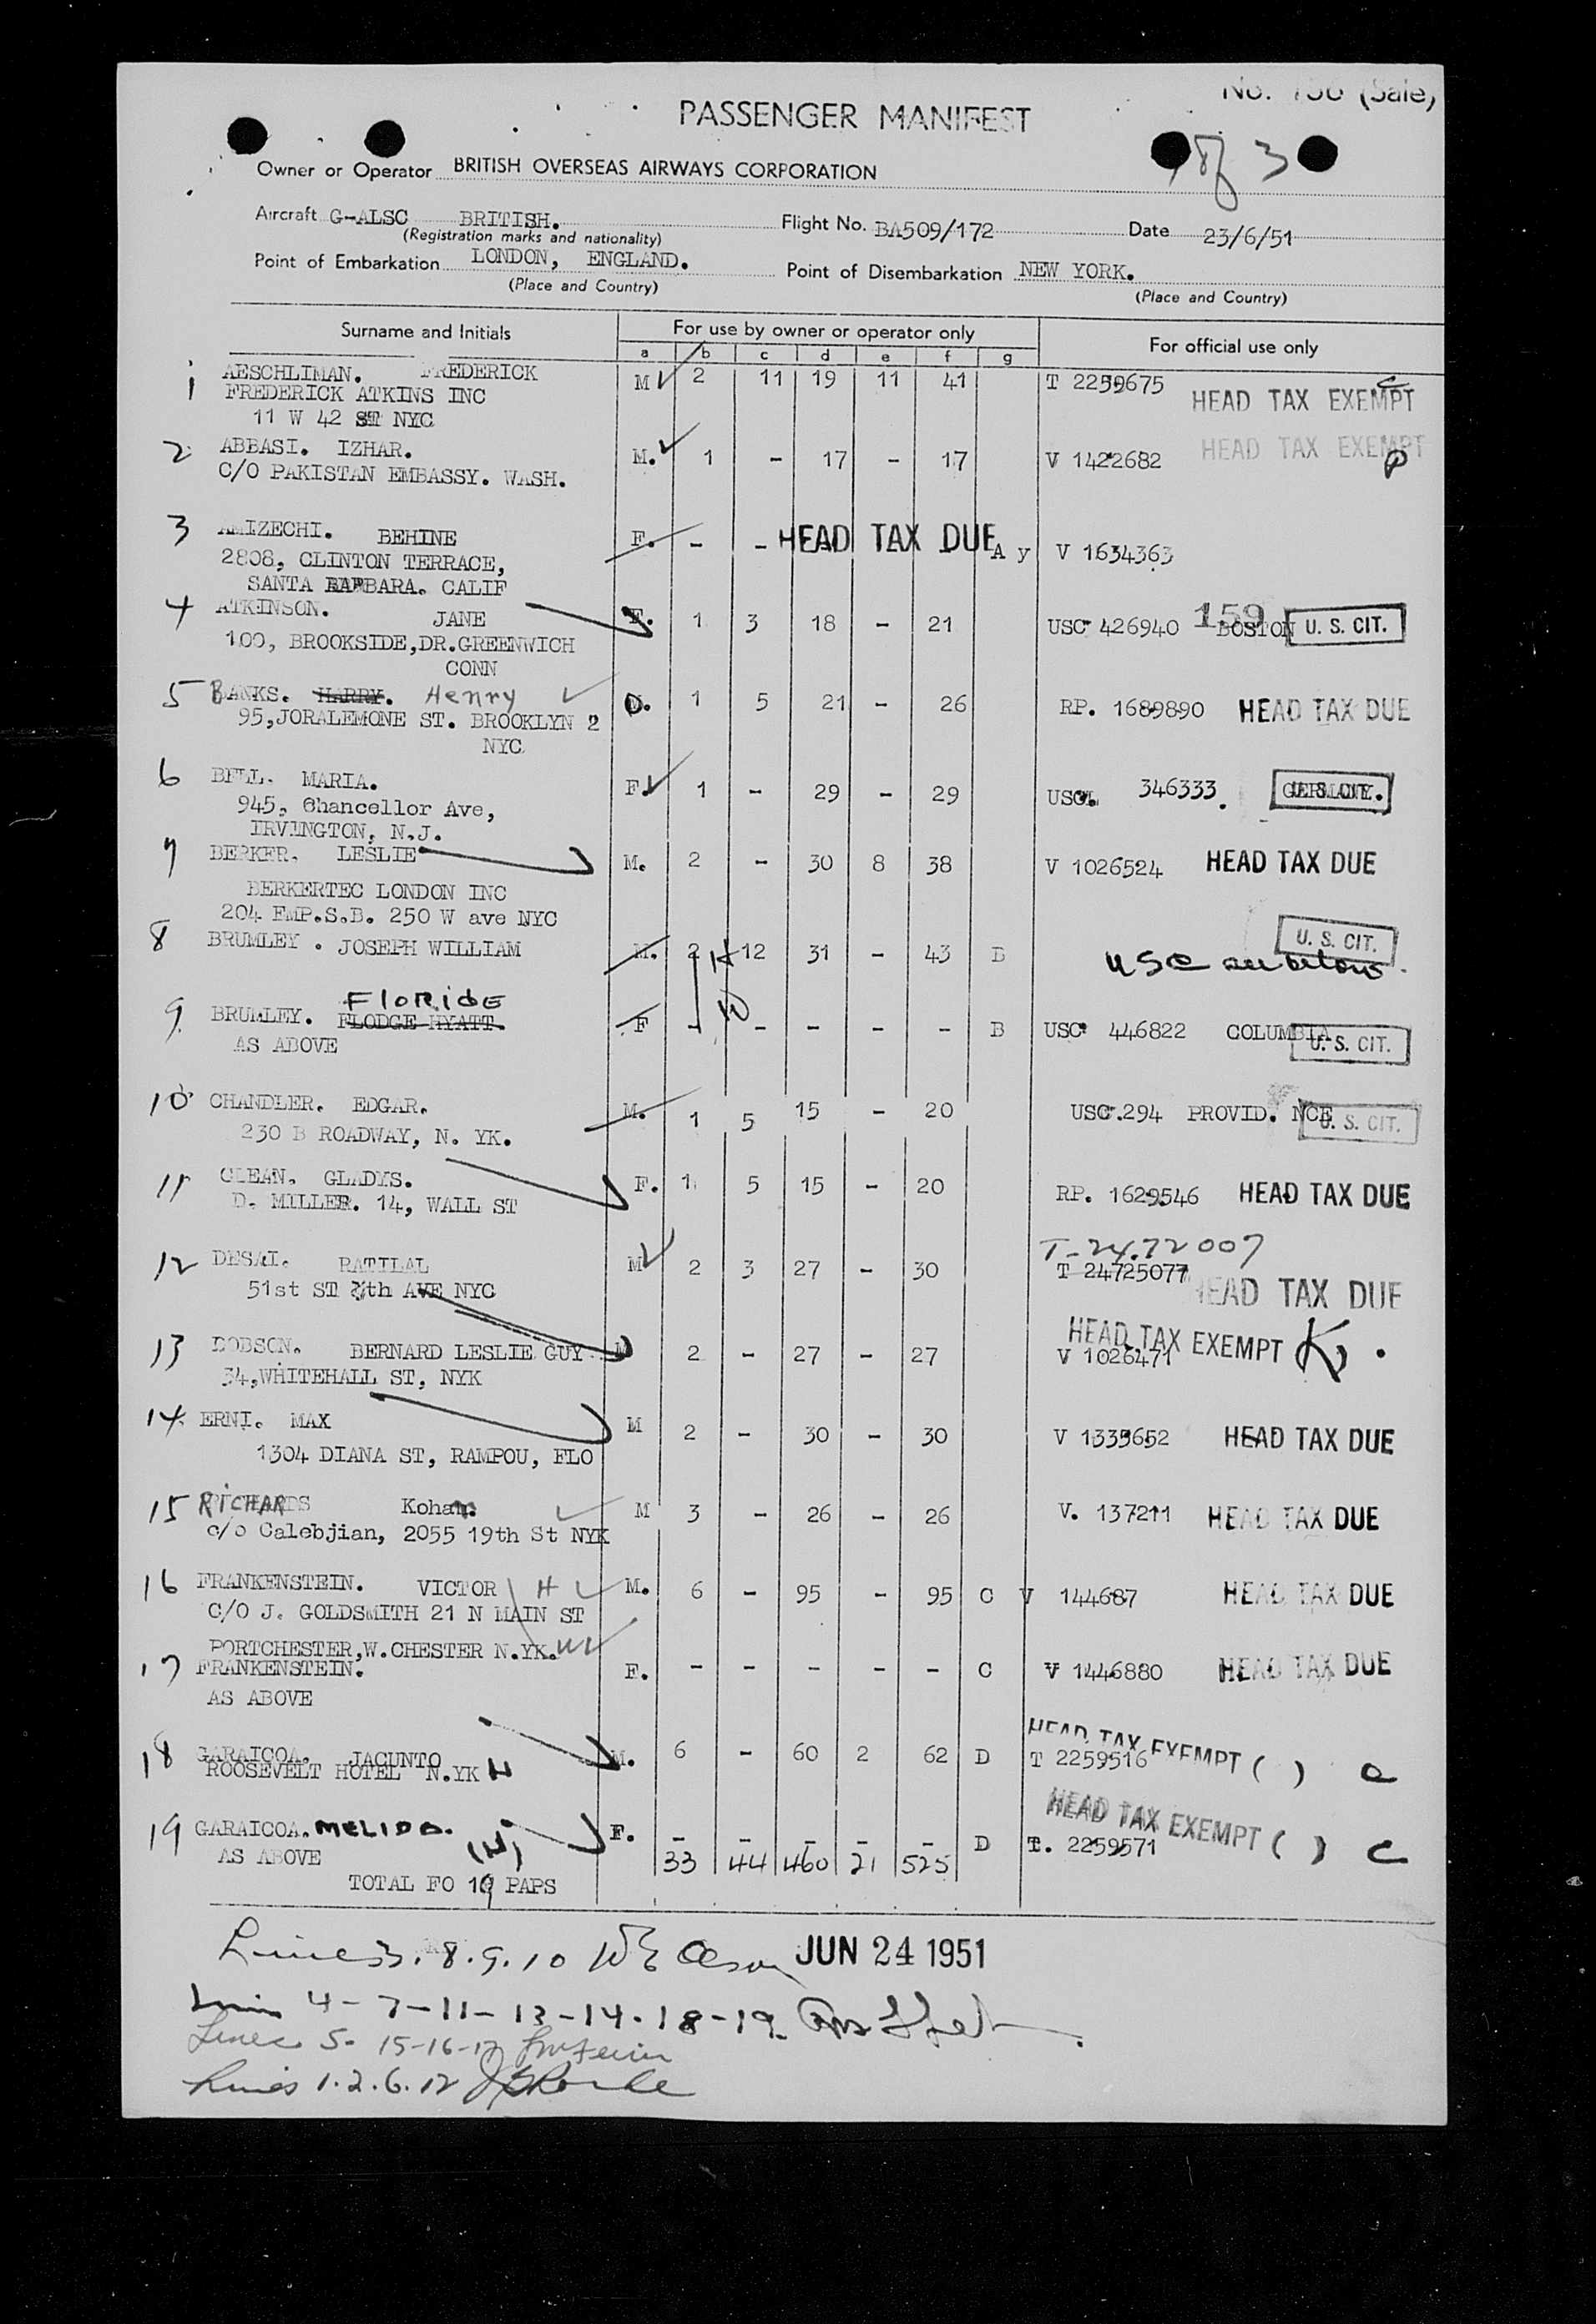 No. 156 (Sale)
PASSENGER MANIFEST
of 3
Owner or Operator BRITISH OVERSEAS AIRWAYS CORPORATION
Aircraft G-ALSC BRITISH. Flight No. BA509/172 Date 23/6/51
(Registration marks and nationality)
Point of Embarkation LONDON, ENGLAND. Point of Disembarkation NEW YORK.
(Place and Country) (Place and Country)
Surname and Initials For use by owner or operator only For official use only
a b c d e f g
1 AESCHLIMAN. FREDERICK M 2 11 19 11 41 T 2259675 HEAD TAX EXEMPT C
FREDERICK ATKINS INC
11 W 42 ST NYC
2 ABBASI. IZHAR. M. 1 - 17 - 17 V 1422682 HEAD TAX EXEMPT P
C/O PAKISTAN EMBASSY. WASH.
3 AMIZECHI. BEHINE F. - - HEAD TAX DUE A y V 1634363
2808, CLINTON TERRACE,
SANTA BARBARA. CALIF
4 ATKINSON. JANE F. 1 3 18 - 21 USC 426940 159 BOSTON U. S. CIT.
100, BROOKSIDE,DR.GREENWICH
CONN
5 BANKS. HARRY. Henry 1 5 21 - 26 RP. 1689890 HEAD TAX DUE
95,JORALEMONE ST. BROOKLYN 2
NYC
6 BELL. MARIA. F. 1 - 29 - 29 USC. 346333. GERMANY. U. S. CIT.
945, Chancellor Ave,
IRVINGTON, N.J.
7 BERKER. LESLIE M. 2 - 30 8 38 V 1026524 HEAD TAX DUE
BERKERTEC LONDON INC
204 EMP.S.B. 250 W ave NYC
8 BRUMLEY . JOSEPH WILLIAM M. 2 12 31 - 43 B U. S. CIT.
USC see below.
9 BRUMLEY. FLODGE HYATT. FLORIDE F - - - - - B USC 446822 COLUMBIA U. S. CIT.
AS ABOVE
10 CHANDLER. EDGAR. M. 1 5 15 - 20 USC.294 PROVID. NCE U. S. CIT.
230 B ROADWAY, N. YK.
11 CLEAN. GLADYS. F. 1 5 15 - 20 RP. 1629546 HEAD TAX DUE
D. MILLER. 14, WALL ST
T-2472007
12 DESAI. RATILAL M 2 3 27 - 30 T 24725077 HEAD TAX DUE
51st ST 7th AVE NYC
13 DOBSON. BERNARD LESLIE GUY M 2 - 27 - 27 V 1026471 HEAD TAX EXEMPT
34,WHITEHALL ST, NYK
14 ERNI. MAX M 2 - 30 - 30 V 1335652 HEAD TAX DUE
1304 DIANA ST, RAMPOU, FLO
15 RICHARDS Kohan. M 3 - 26 - 26 V. 137211 HEAD TAX DUE
c/o Calebjian, 2055 19th St NYK
16 FRANKENSTEIN. VICTOR H M. 6 - 95 - 95 C V 144687 HEAD TAX DUE
C/O J. GOLDSMITH 21 N MAIN ST
PORTCHESTER,W.CHESTER N.YK. W
17 FRANKENSTEIN. F. - - - - - C V 1446880 HEAD TAX DUE
AS ABOVE
18 GARAICOA. JACUNTO M. 6 - 60 2 62 D T 2259516 HEAD TAX EXEMPT ( ) C
ROOSEVELT HOTEL N.YK H
19 GARAICOA. MELIDA. F. - - - - - D T. 2259571 HEAD TAX EXEMPT ( ) C
AS ABOVE (W) 33 44 460 21 525
TOTAL FO 19 PAPS
Lines 3. 8. 9. 10 JUN 24 1951
Lines 4-7-11-13-14-18-19.
Lines 5- 15-16-17
Lines 1. 2. 6. 12